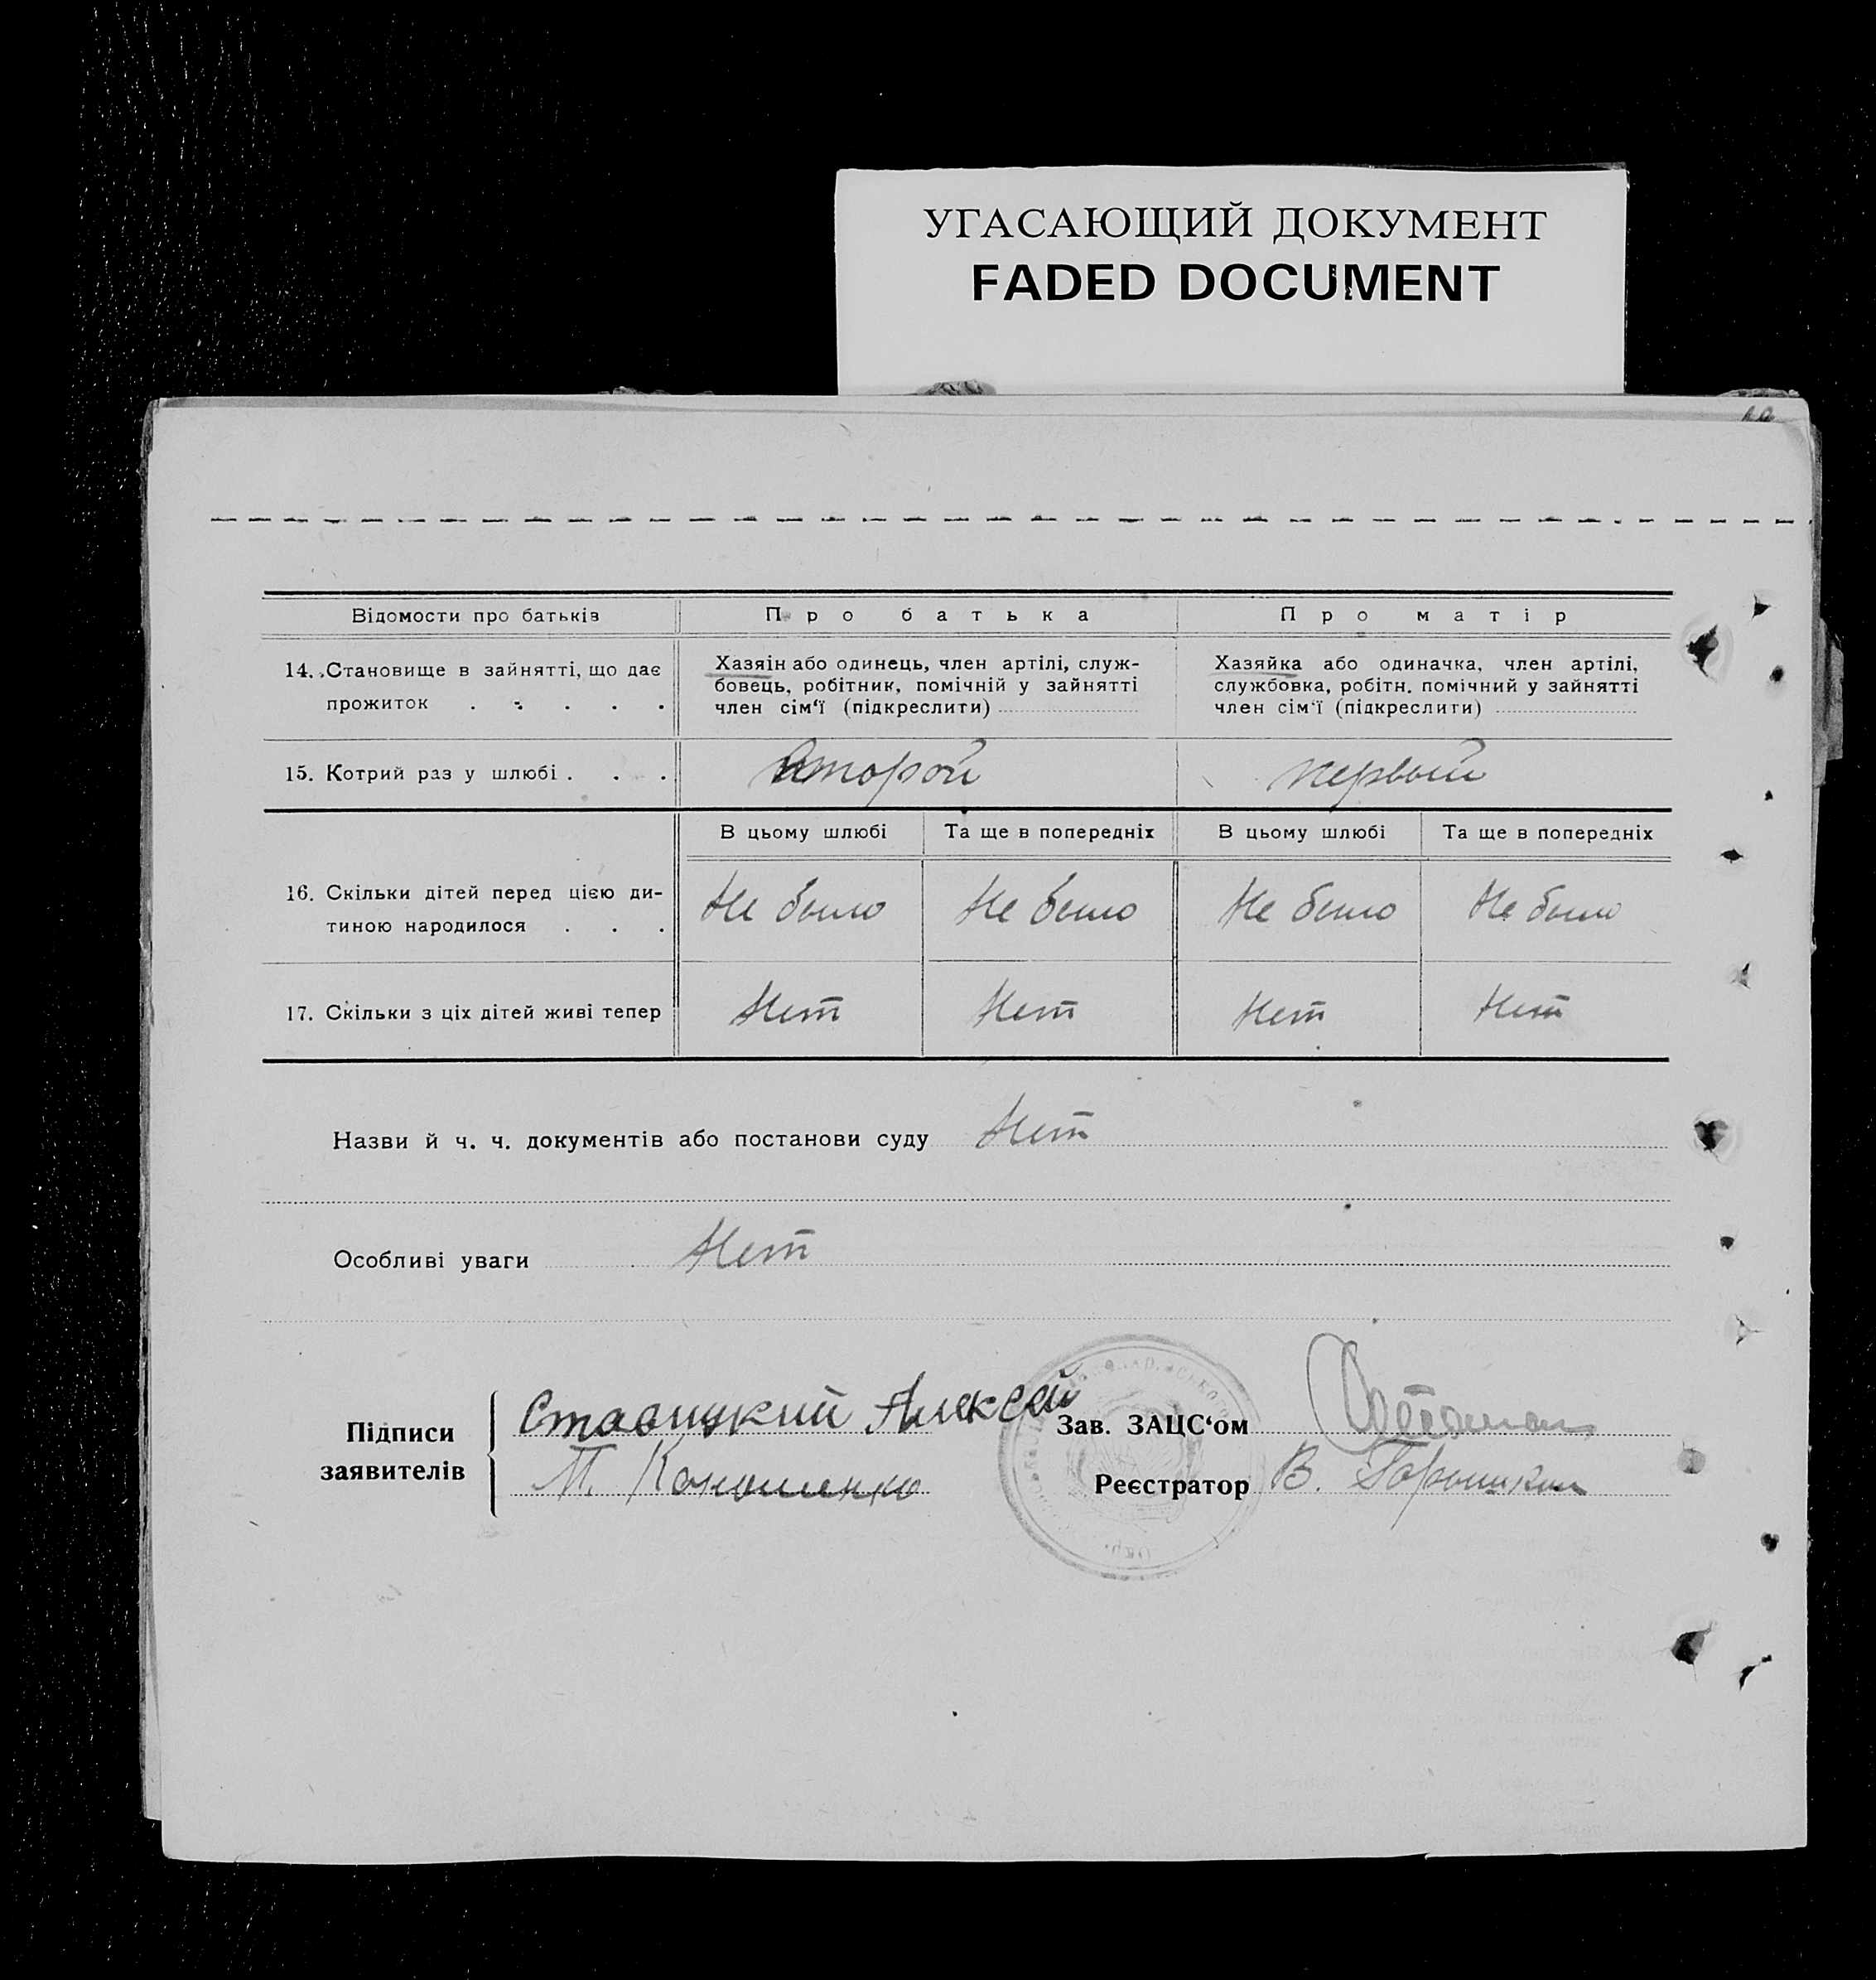 УГАСАЮЩИЙ ДОКУМЕНТ
FADED DOCUMENT
Відомости про батьків
Про батька
Про матір
14. Становище в зайнятті, що дає
прожиток . . . . .
Хазяін або одинець, член артілі, служ-
бовець, робітник, помічній у зайнятті
член сім‘ї (підкреслити)
Хазяйка або одиначка, член артілі,
службовка, робітн. помічний у зайнятті
член сім‘ї (підкреслити)
15. Котрий раз у шлюбі . . .
второй
первый
В цьому шлюбі
Та ще в попередніх
В цьому шлюбі
Та ще в попередніх
16. Скільки дітей перед цією ди-
тиною народилося . . .
Не было
Не было
Не было
Не было
17. Скільки з ціх дітей живі тепер
Нет
Нет
Нет
Нет
Назви й ч. ч. документів або постанови суду Нет
Особливі уваги Нет
Підписи
заявителів
Ставицкий Алексей
М.
Зав. ЗАЦС‘ом
Реєстратор В.